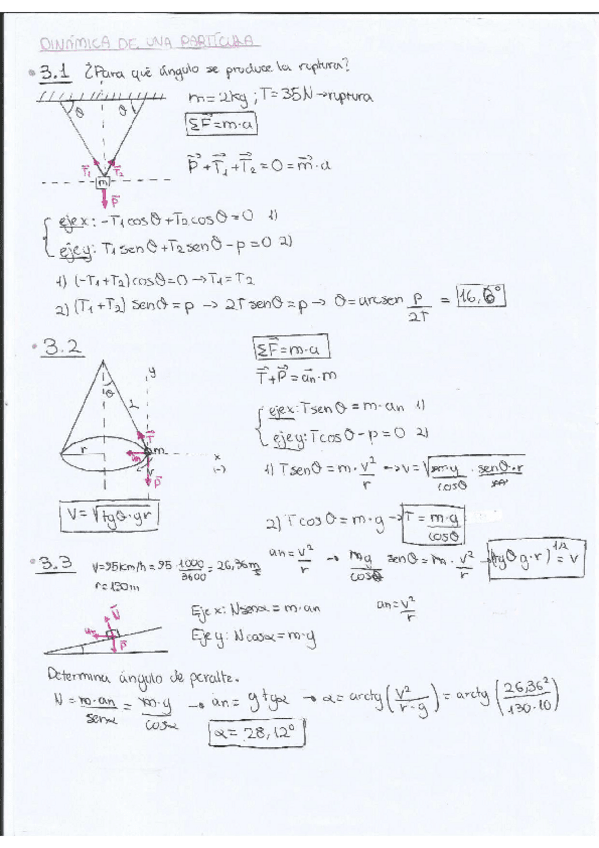 DINÁMICA DE UNA PARTÍCULA
• 3.1 ¿Para qué ángulo se produce la ruptura?
θ θ
m = 2kg ; T = 35N → ruptura
ΣF⃗ = m·a
T⃗₁ T⃗₂
m
P⃗
P⃗ + T⃗₁ + T⃗₂ = 0 = m⃗·a
eje x: -T₁cosθ + T₂cosθ = 0 1)
eje y: T₁senθ + T₂senθ - p = 0 2)
1) (-T₁ + T₂) cosθ = 0 → T₁ = T₂
2) (T₁ + T₂) senθ = p → 2T senθ = p → θ = arcsen p/2T = 16,6°
• 3.2
ΣF⃗ = m·a
T⃗ + P⃗ = a⃗n·m
y
θ
L
T⃗
m
r
an
x
(-)
P⃗
eje x: T senθ = m·an 1)
eje y: T cosθ - p = 0 2)
1) T senθ = m·v²/r → v = √(m·g/cosθ · senθ·r/m)
V = √(tgθ·gr)
2) T cosθ = m·g → T = m·g/cosθ
an = v²/r → mg/cosθ senθ = m·v²/r → (tgθ g·r)^1/2 = v
• 3.3 V = 95km/h = 95 1000/3600 = 26,36 m/s
r = 130m
N⃗
an
P⃗
Eje x: N senα = m·an
an = v²/r
Eje y: N cosα = m·g
Determina ángulo de peralte.
N = m·an/senα = m·g/cosα → an = g tgα → α = arctg(v²/r·g) = arctg(26,36²/130·10)
α = 28,12°